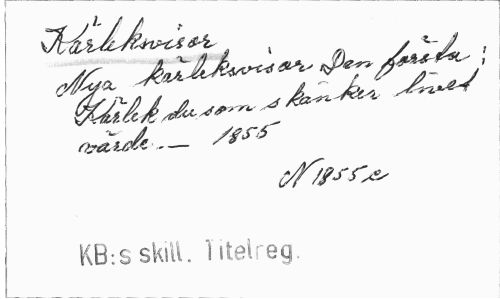 Kärleksvisor
Nya kärleksvisor Den första:
Kärlek du som skänker livet
värde. — 1855
N 1855 e
KB:s skill. Titelreg.